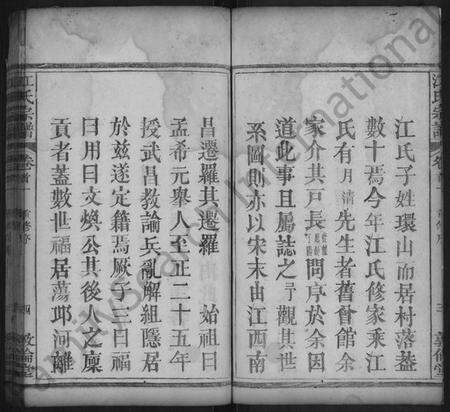 江氏子姓環山而居村落蓋
數十焉今年江氏修家乘江
氏有月清先生者舊會館余
家介其戸長問序於余因
道此事且屬誌之予觀其世
系圖則亦以宋末由江西南
昌遷羅其遷羅始祖曰
孟希元舉人至正二十五年
授武昌教諭兵亂解組隱居
於玆遂定籍焉厥子三曰福
曰用曰文煥公其後人之廩
貢者蓋數世福居蕩邱河離
江氏宗譜 卷首 重修序 四 敦倫堂
FamilySearch International